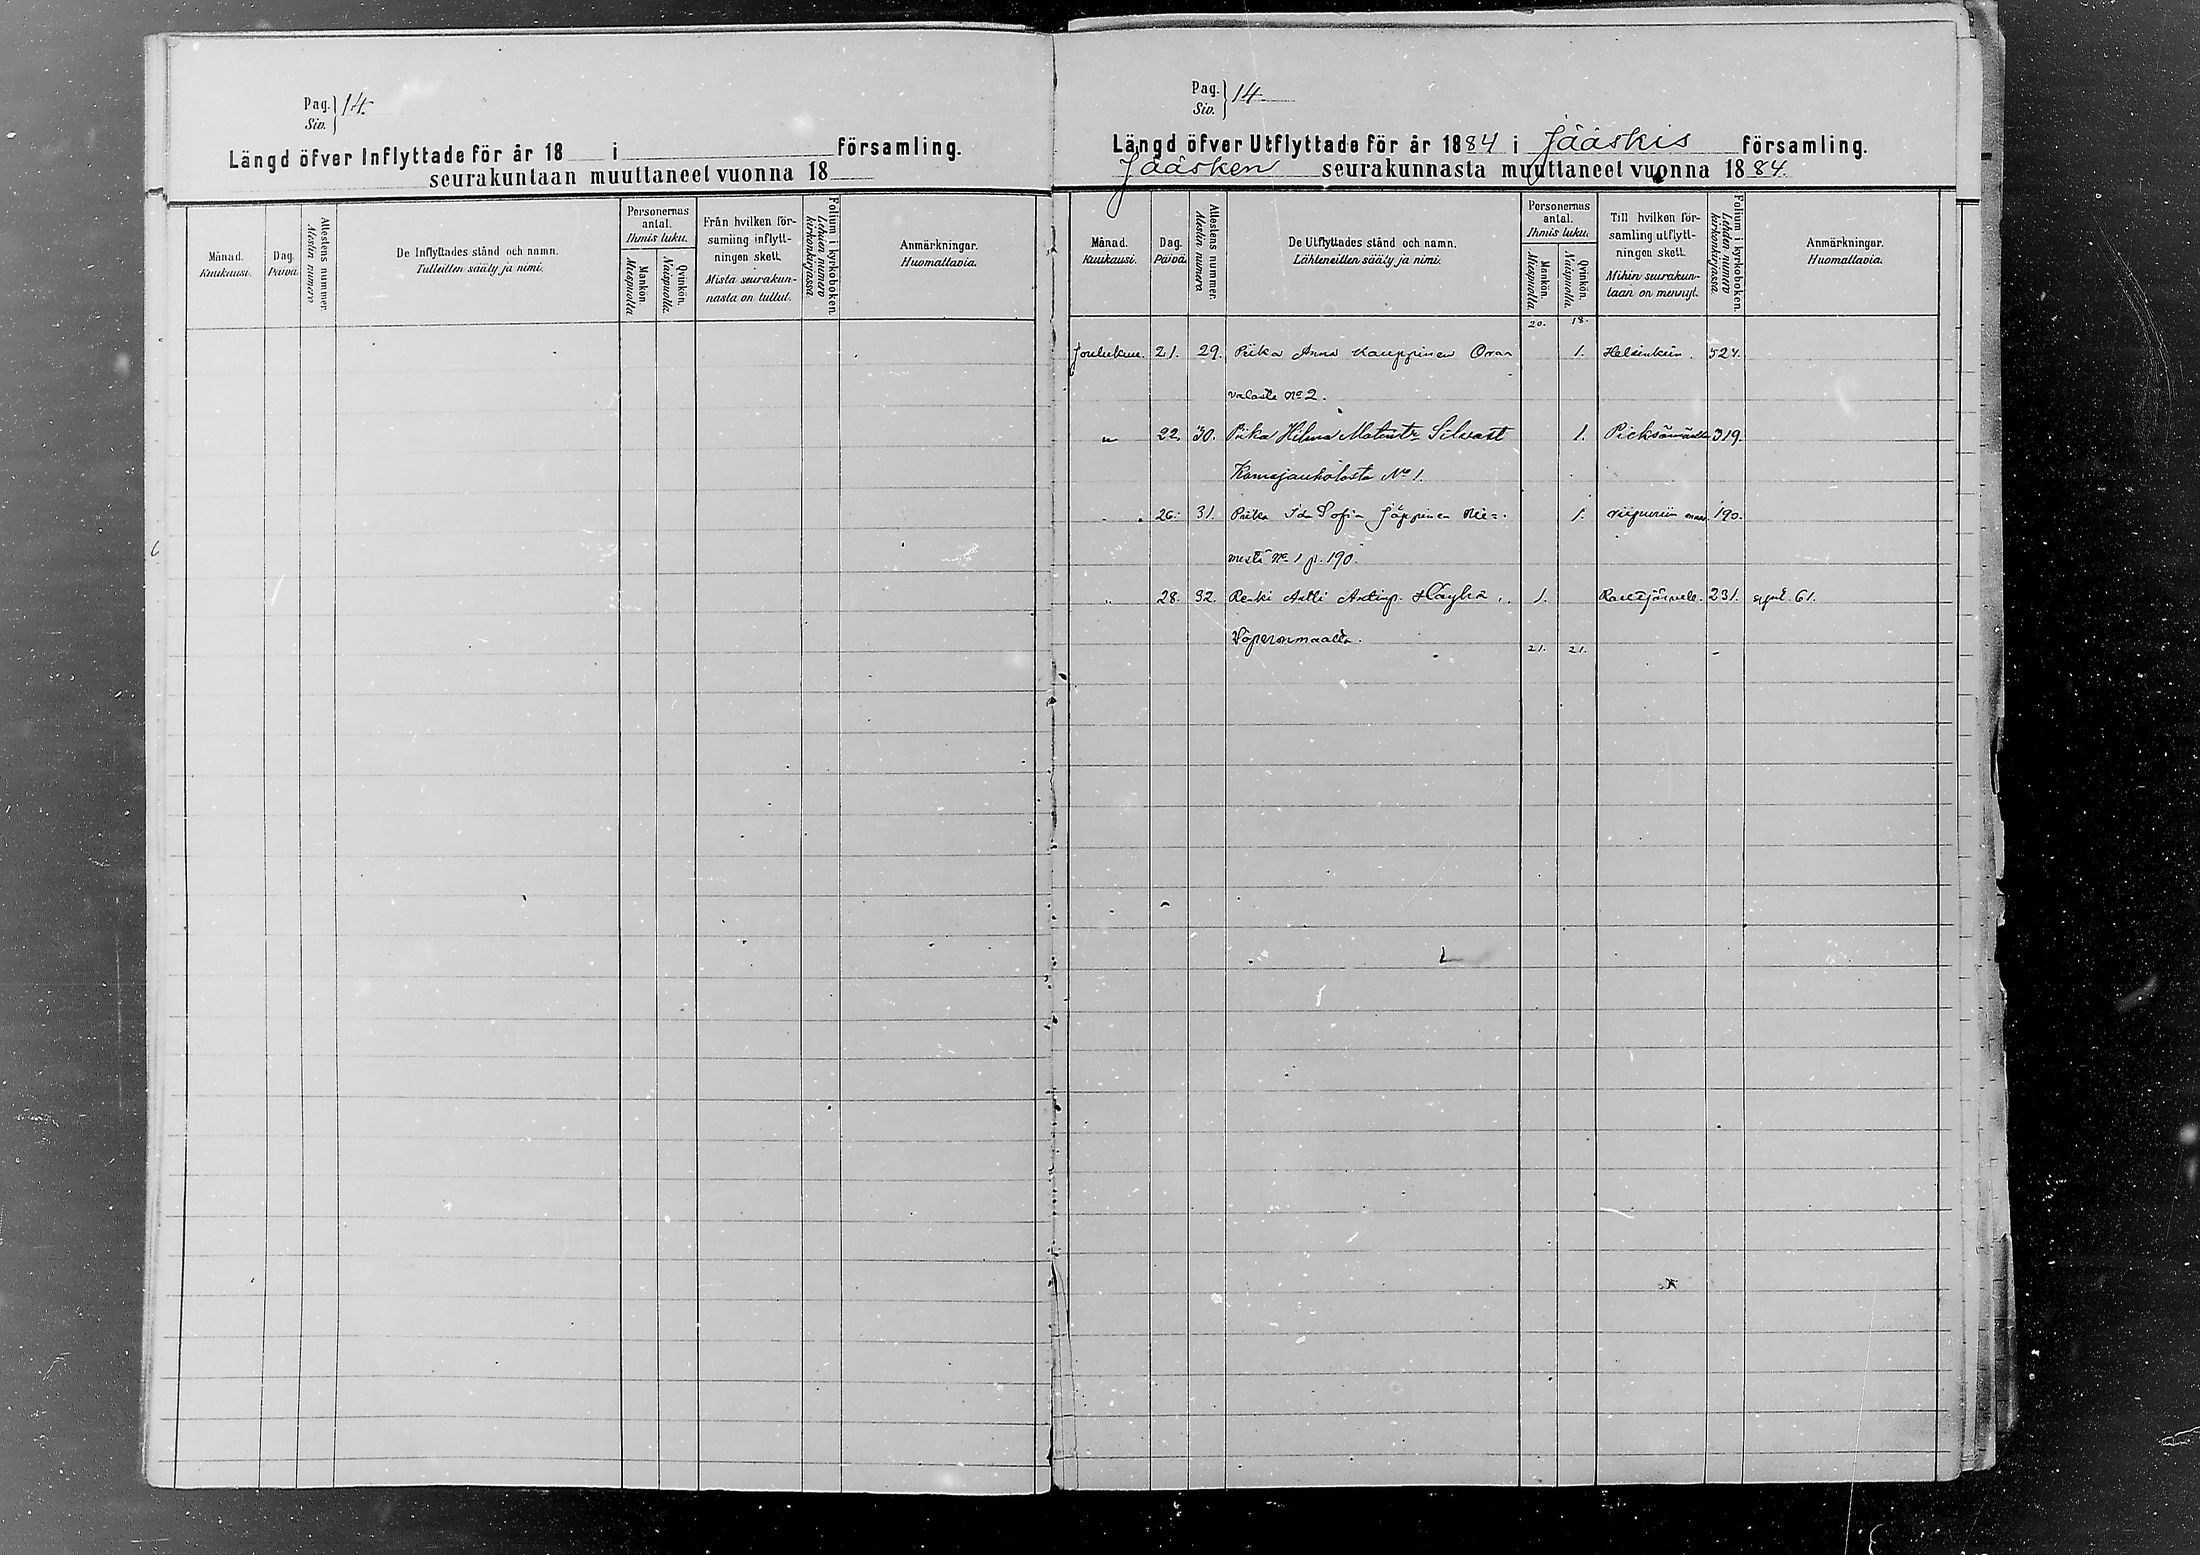 Pag. 14.
Siv.
Längd öfver Inflyttade för år 18 i församling.
seurakuntaan muuttaneet vuonna 18
Månad.
Kuukausi.
Dag.
Päivä
Attestens nummer.
Atestin numero
De Inflyttades stånd och namn.
Tulleitten sääty ja nimi.
Personernas
antal.
Ihmis luku.
Mankön.
Miespuolia
Qvinkön.
Naispuolia.
Från hvilken för-
samling inflytt-
ningen skett.
Mistä seurakun-
nasta on tullut.
Folium i kyrkoboken.
Lehden numero
kirkonkirjassa
Anmärkningar.
Huomattavia.
Pag. 14.
Siv.
Längd öfver Utflyttade för år 1884 i Jääskis församling.
Jääsken seurakunnasta muuttaneet vuonna 1884.
Månad.
Kuukausi.
Dag.
Päivä
Attestens nummer.
Atestin numero
De Utflyttades stånd och namn.
Lähteneitten sääty ja nimi.
Personernas
antal.
Ihmis luku.
Mankön.
Miespuolia.
Qvinkön.
Naispuolia.
Till hvilken för-
samling utflytt-
ningen skett.
Mihin seurakun-
taan on mennyt.
Folium i kyrkoboken.
Lehden numero
kirkonkirjassa
Anmärkningar.
Huomattavia.
20. 18.
Joulukuu. 21. 29. Piika Anna Kauppinen Orar 1. Helsinkiin. 524.
valasta No 2.
" 22. 30. Piika Hilma Silvast 1. 319.
No 1.
" 26. 31. Piika Ida Sofia Jäppinen Nie= 1. Viipuriin 190.
mestä No 1 p. 190.
" 28. 32. Renki Antti Antinp. Häyhä 1. Rautjärvelle. 231. 61.
21. 21.